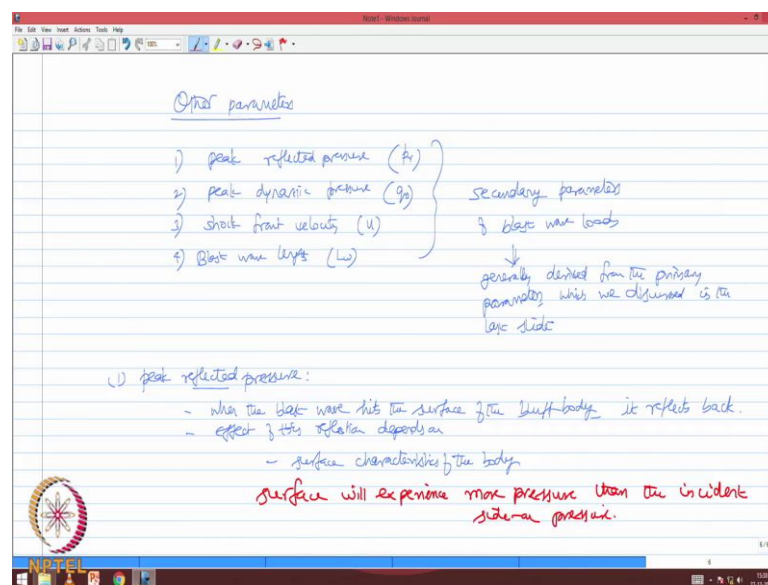 Note1 - Windows Journal
File Edit View Insert Actions Tools Help
100%
Other parameters
1) peak reflected pressure (pr)
2) peak dynamic pressure (q0)
3) shock front velocity (U)
4) Blast wave length (Lw)
secondary parameters
of blast wave loads
generally derived from the primary
parameters which we discussed in the
last slide
(1) peak reflected pressure:
- when the blast wave hits the surface of the bluff body it reflects back.
- effect of this reflection depends on
- surface characteristics of the body
surface will experience more pressure than the incident
side-on pressure.
NPTEL